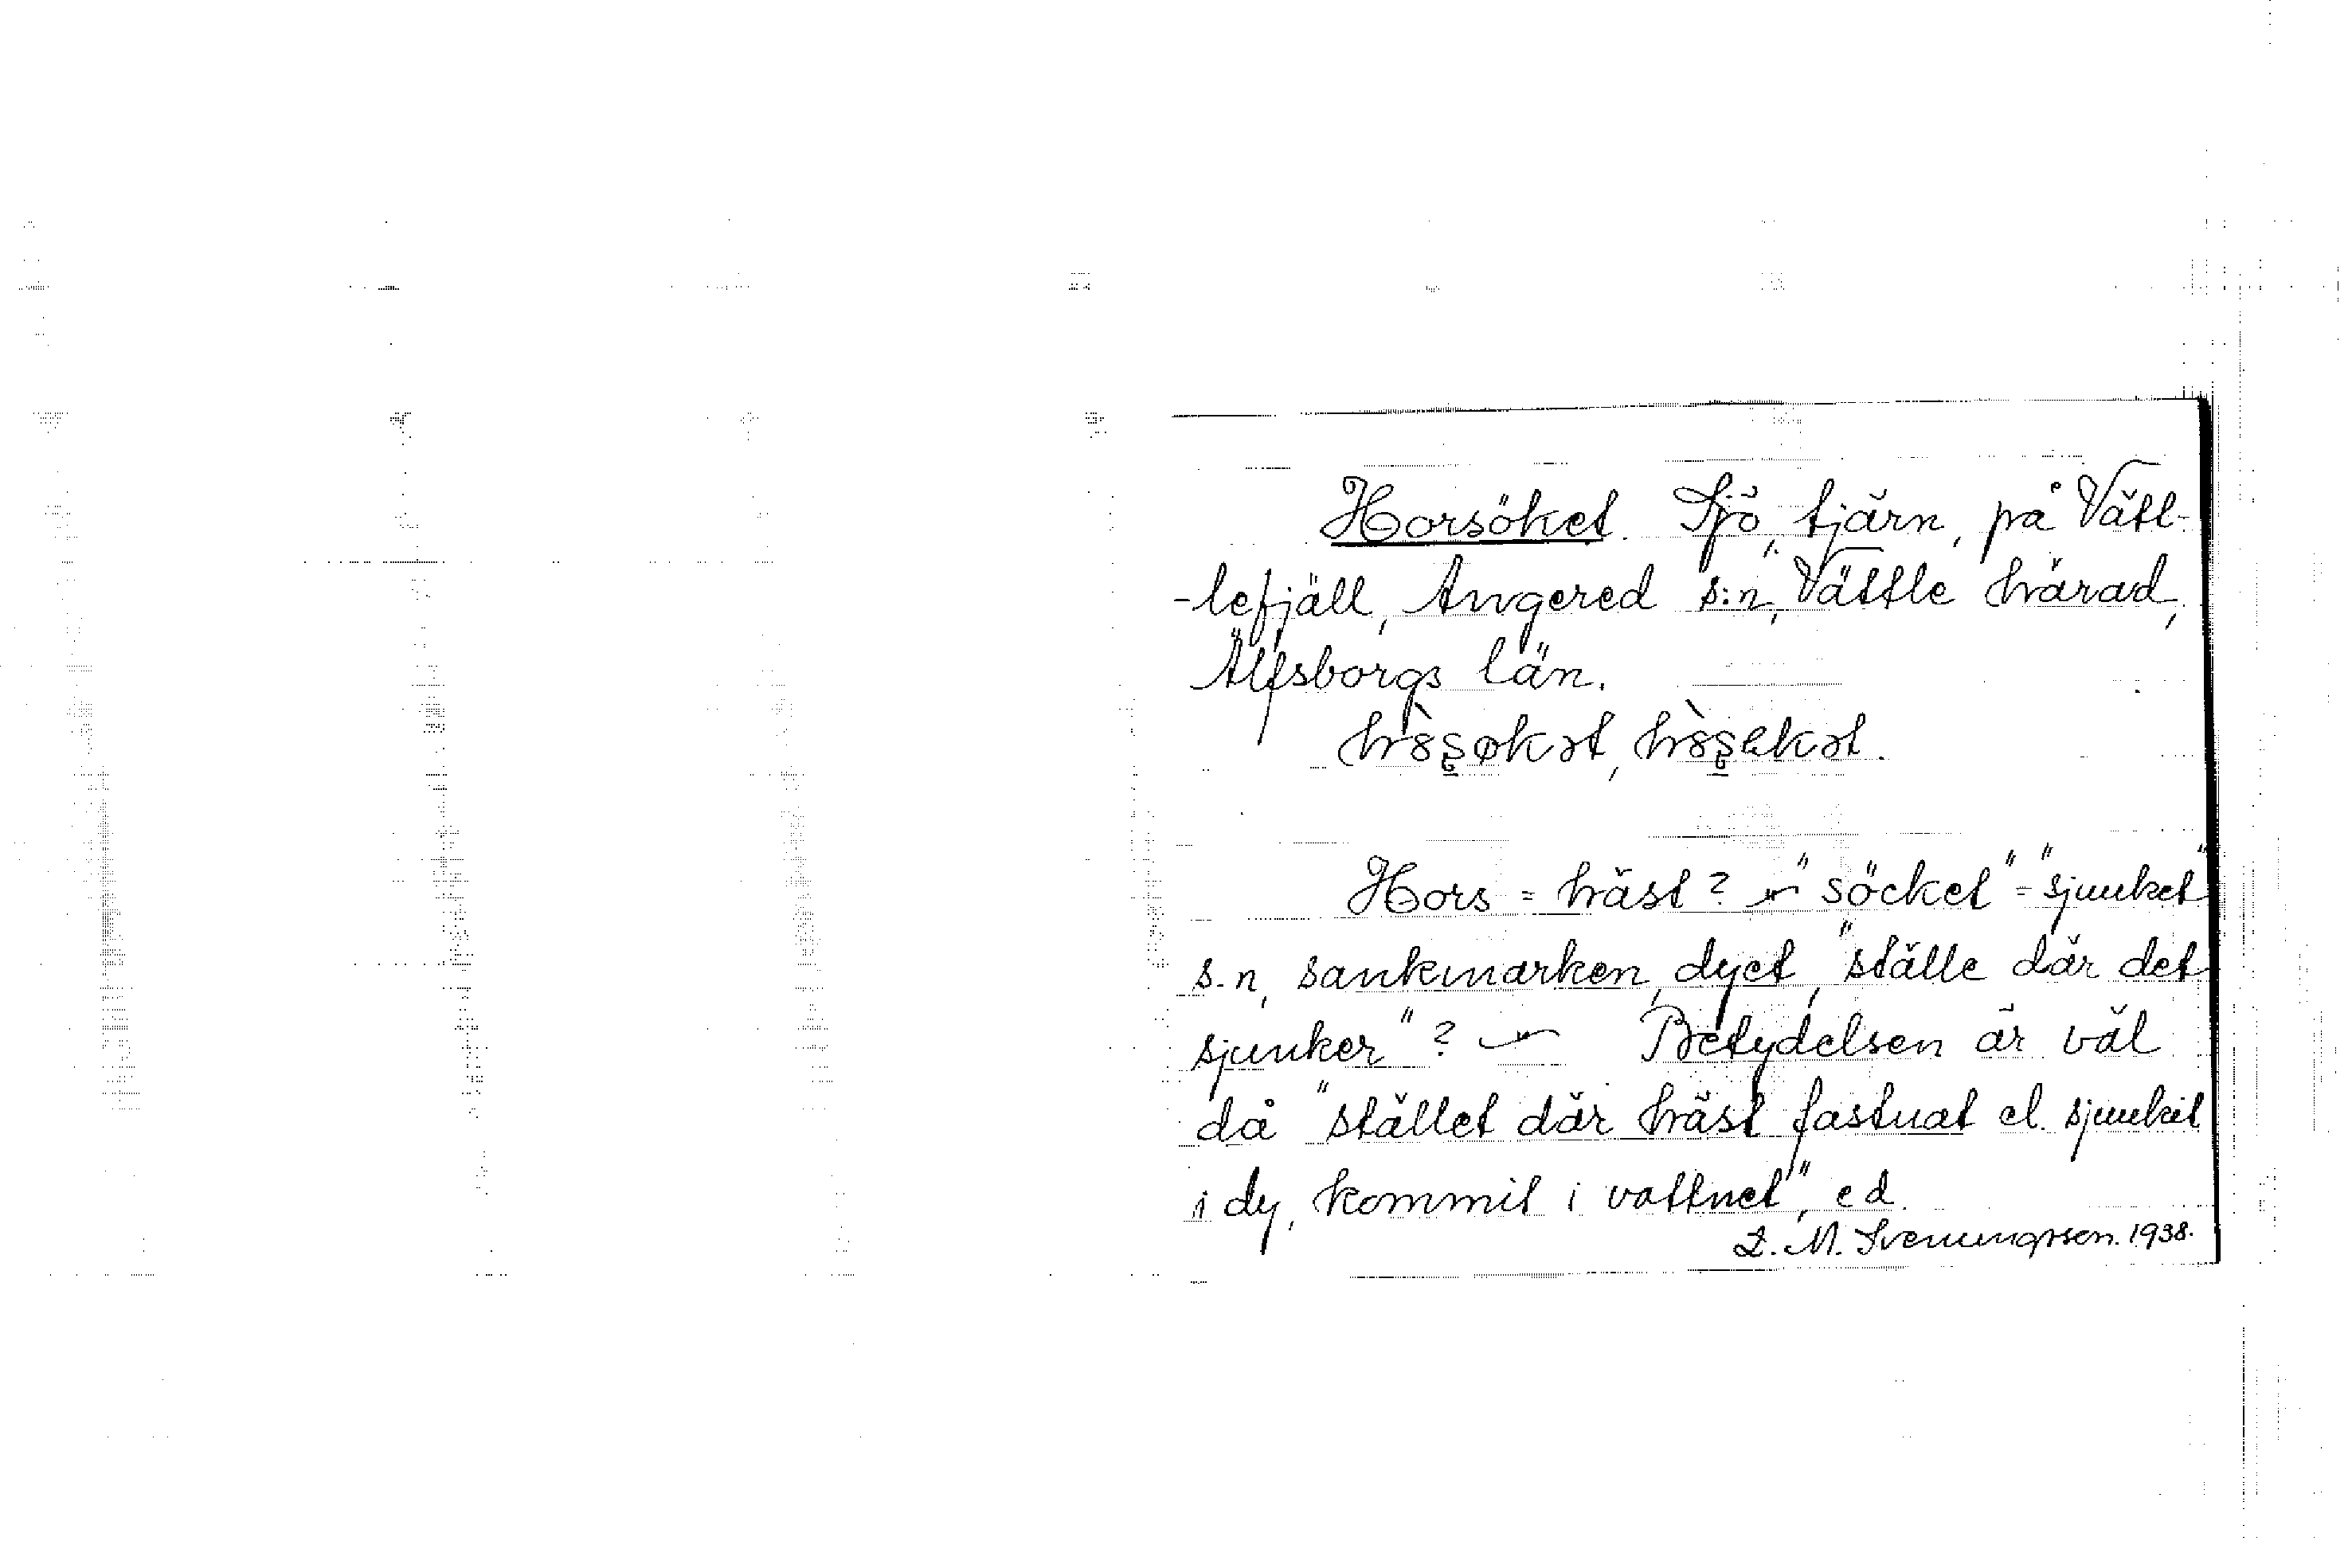 Horsöket. Sjö, tjärn, på Vätt-
-lefjäll, Angered s:n, Vättle härad,
Älfsborgs län.
Hors = häst? — "söcket" = "sjunket"
s-n, sankmarken, dyet, "ställe där det
sjunker"? — Betydelsen är väl
då "stället där häst fastnat el. sjunkit
i dy, kommit i vattnet", e d.
M. Svenungsson. 1938.